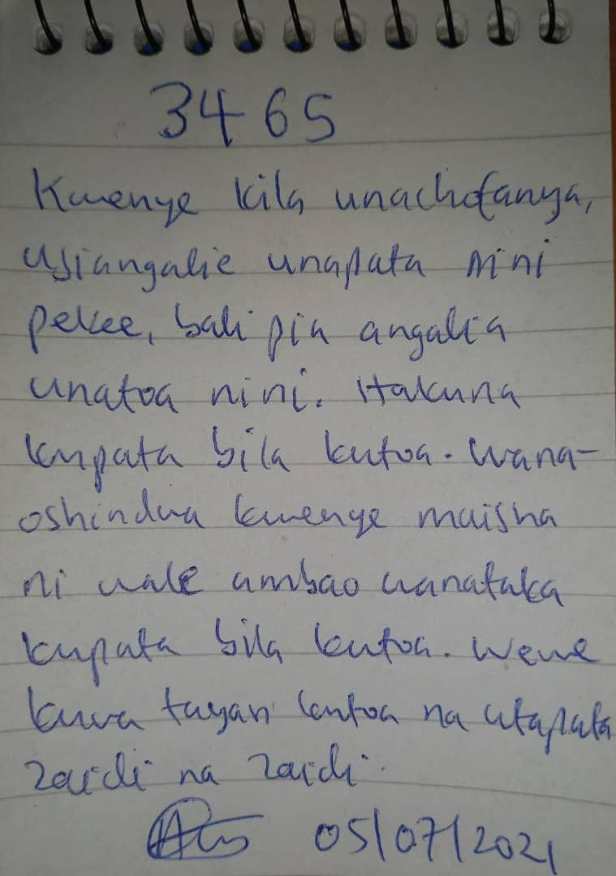 3465
Kwenye kila unachofanya,
usiangalie unapata nini
pekee, bali pia angalia
unatoa nini. Hakuna
kupata bila kutoa. Wana-
oshindwa kwenye maisha
ni wale ambao wanataka
kupata bila kutoa. Wewe
kuwa tayari kutoa na utapata
zaidi na zaidi.
05/07/2021